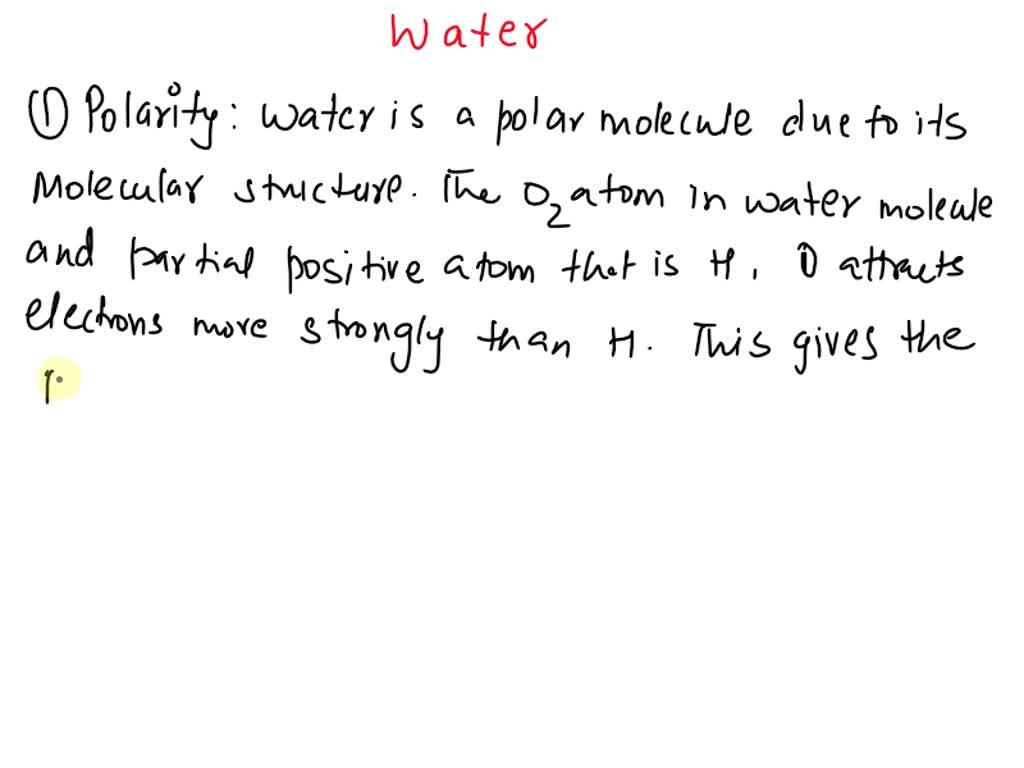 Water
① Polarity: Water is a polar molecule due to its
Molecular structure. The O₂ atom in water molecule
and partial positive atom that is H, O attracts
electrons more strongly than H. This gives the